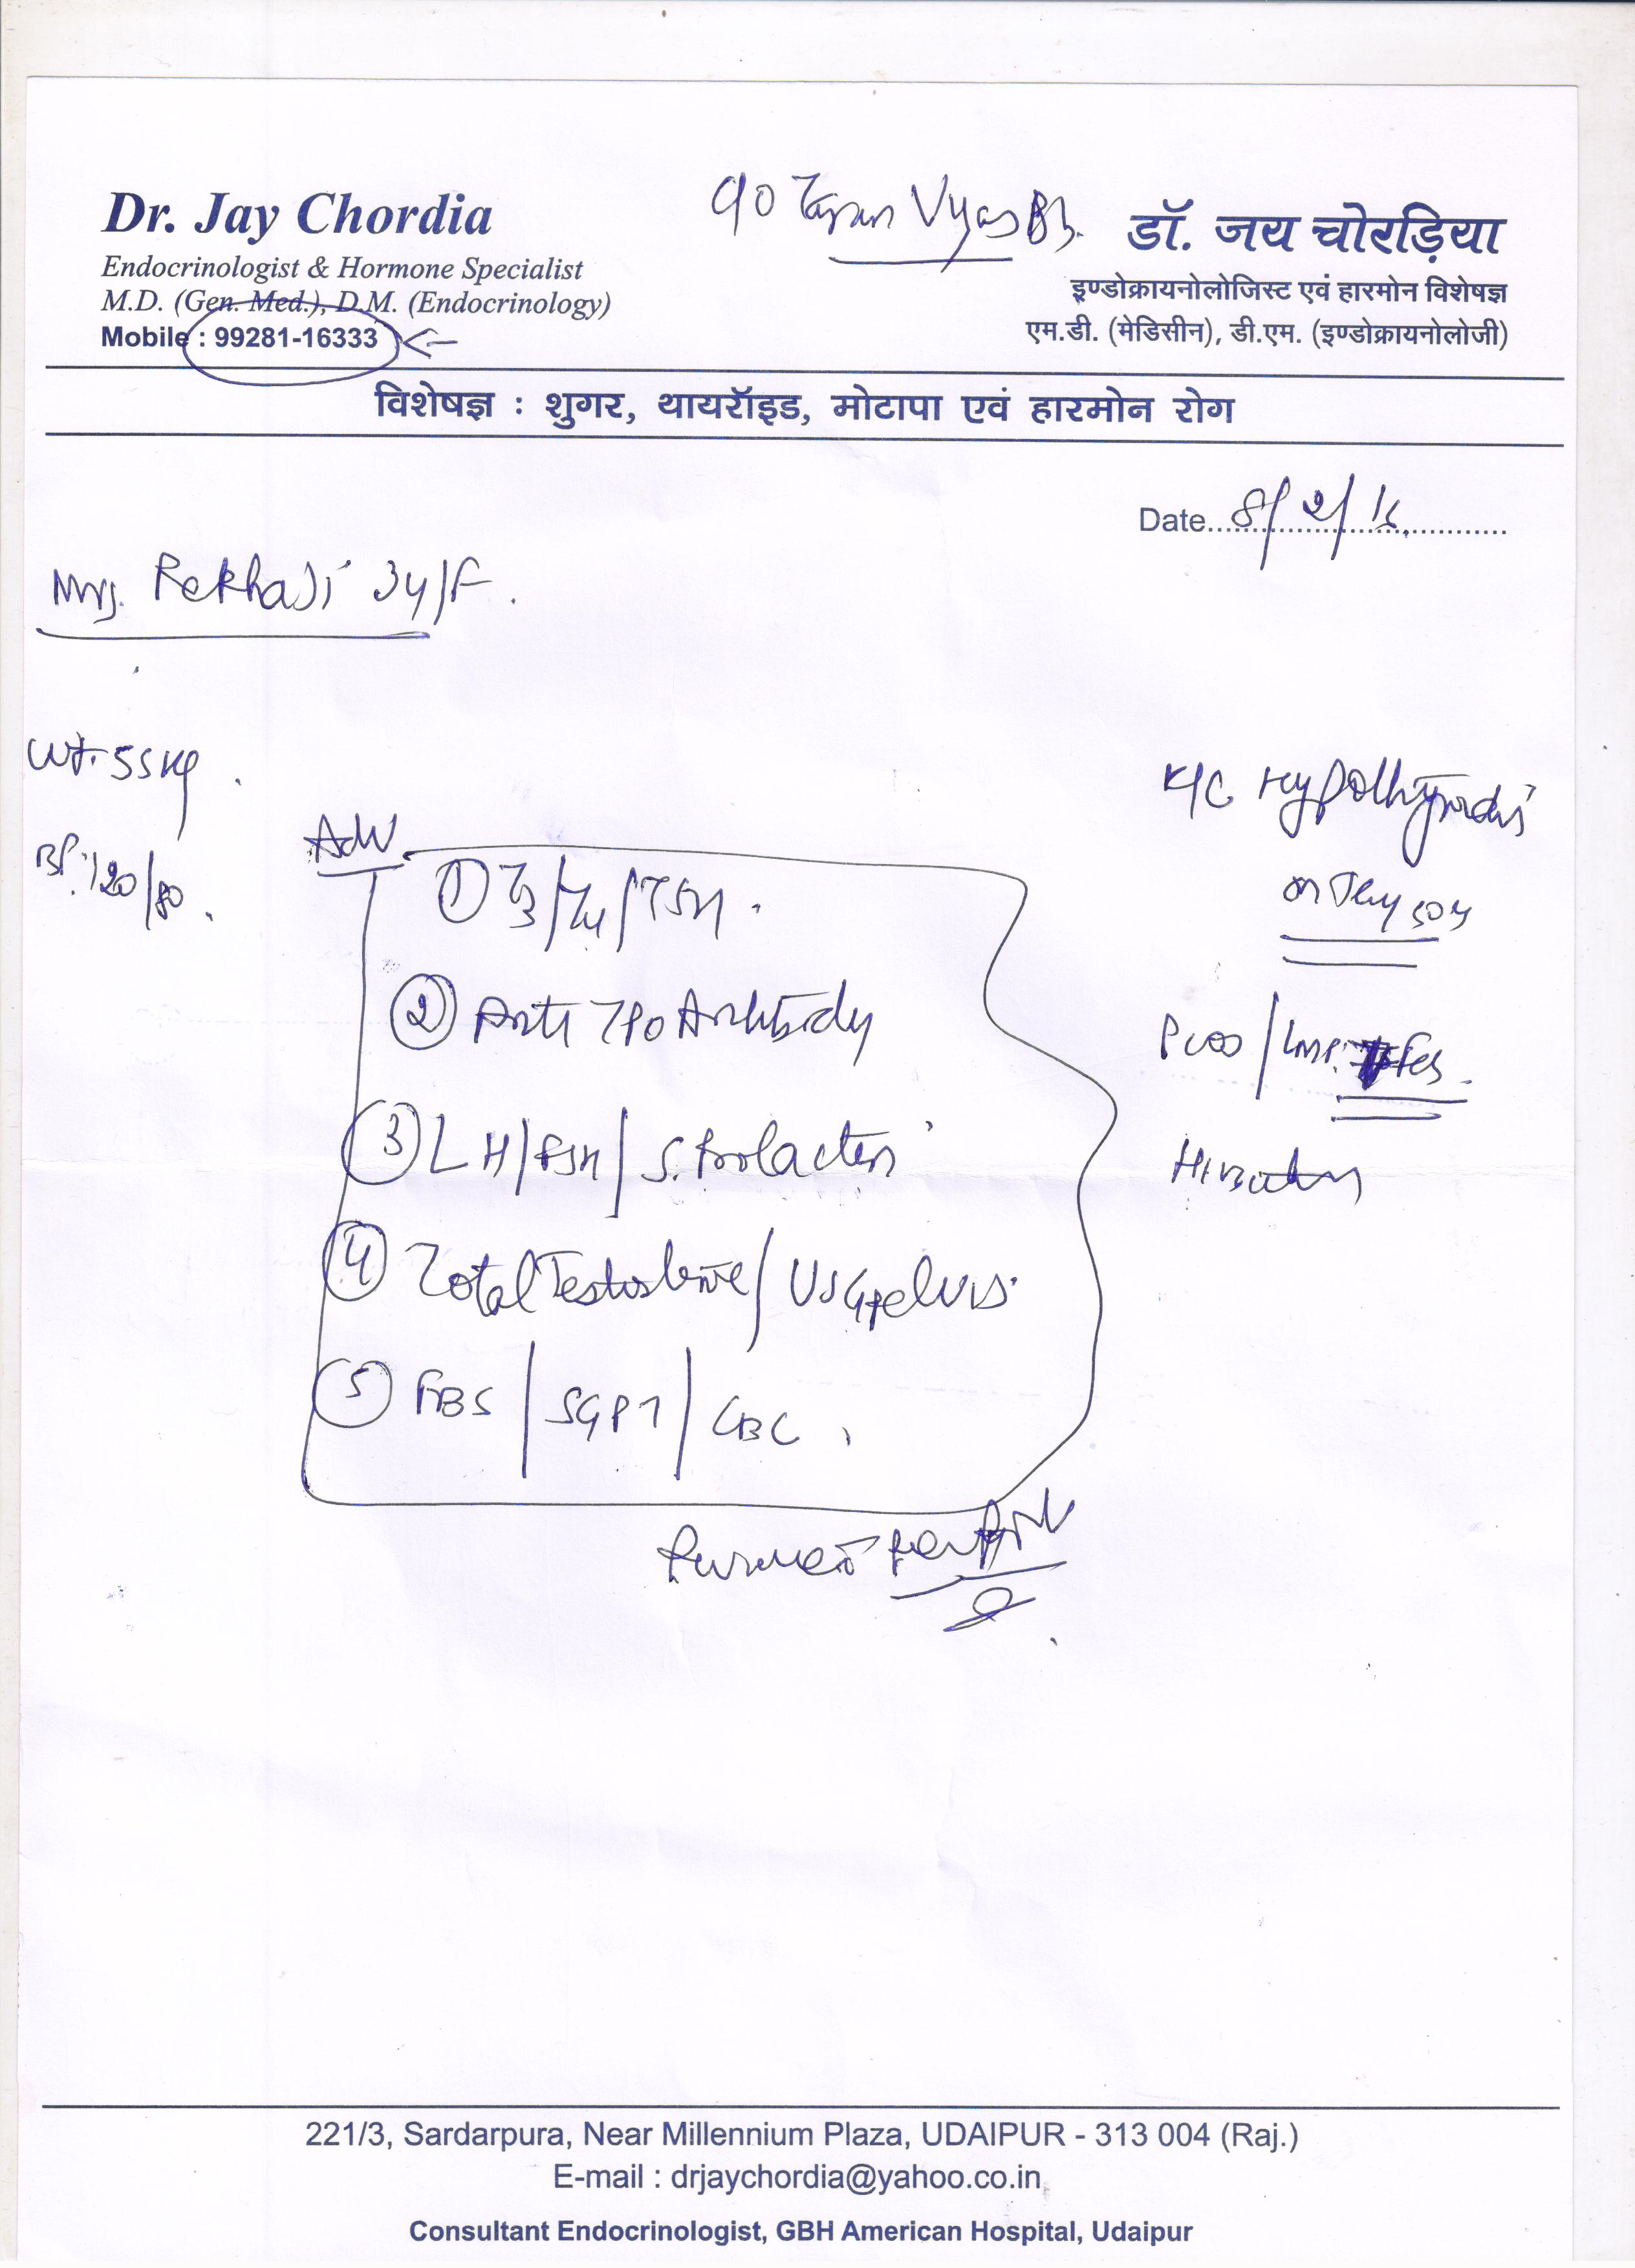 Dr. Jay Chordia
Endocrinologist & Hormone Specialist
M.D. (Gen. Med.), D.M. (Endocrinology)
Mobile : 99281-16333
Vyas
डॉ. जय चोरड़िया
इण्डोक्रायनोलोजिस्ट एवं हारमोन विशेषज्ञ
एम.डी. (मेडिसीन), डी.एम. (इण्डोक्रायनोलोजी)
विशेषज्ञ : शुगर, थायरॉइड, मोटापा एवं हारमोन रोग
Date 8/2/16
Mrs. Rekhaji 34/F.
Wt. 55 kg
BP. 120/80
K/C Hypothyroidis
on
PCOS / LMP. Feb
Hirsutism
Adv
① T3/T4/TSH.
② Anti TPO Antibody
③ LH/FSH/S. Prolactin
④ Total Testosterone/USG pelvis.
⑤ FBS / SGPT / CBC
221/3, Sardarpura, Near Millennium Plaza, UDAIPUR - 313 004 (Raj.)
E-mail : drjaychordia@yahoo.co.in
Consultant Endocrinologist, GBH American Hospital, Udaipur